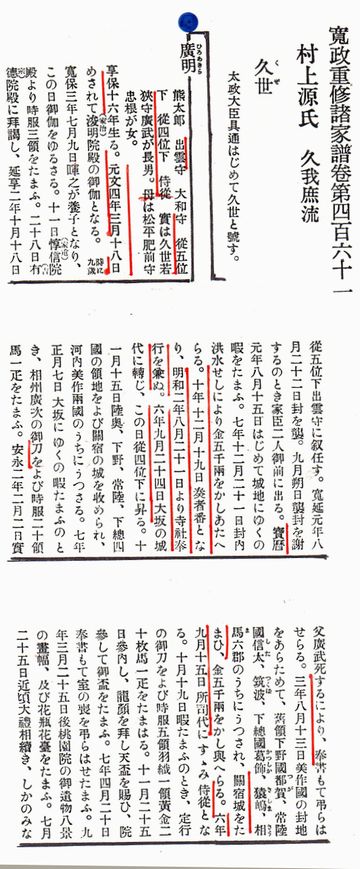 寛政重修諸家譜卷第四百六十一
村上源氏 久我庶流
久世
くぜ
太政大臣具通はじめて久世と號す。
廣明
ひろあきら
熊太郎 出雲守 大和守 從五位
下 從四位下 侍從 實は久世若
狹守廣武が長男。母は松平肥前守
忠根が女。
享保十六年生る。元文四年三月十八日
めされて浚明院殿の御伽となる。時に九歳
(家治)
寛保三年七月九日暉之が養子となり、
この日御伽をゆるさる。十一日惇信院
(家重)
殿より時服三領をたまふ。二十八日有
德院殿に拜謁し、延享二年十月十八日
從五位下出雲守に叙任す。寛延元年八
月二十二日封を襲。九月朔日襲封を謝
するのとき家臣二人御前に出る。寶曆
元年八月十五日はじめて城地にゆくの
暇をたまふ。七年十二月二十一日封内
洪水せしにより金五千兩をかしあたへ
らる。十年十二月十九日奏者番とな
り、明和二年八月二十一日より寺社奉
行を兼ぬ。六年九月二十四日大坂の城
代に轉じ、この日從四位下に昇る。十
一月十五日陸奥、下野、常陸、下總四
國の領地をよび關宿の城を收められ、
河内美作兩國のうちにうつさる。七年
正月七日大坂にゆくの暇たまふのと
き、相州廣次の御刀をよび時服二十領
馬一疋をたまふ。安永二年二月二日實
父廣武死するにより、奉書もて弔らは
せらる。三年八月十三日美作國の封地
をあらためて、舊領下野國都賀、常陸
國信太、筑波、下總國葛飾、猿嶋、相
馬六郡のうちにうつされ、關宿城をた
まひ、金五千兩をかし與へらる。六年
九月十五日所司代にすゝみ侍從とな
る。十月十九日暇たまふのとき、定行
の御刀をよび時服五領羽織一領黄金二
十枚馬一疋をたまはる。十一月二十五
日參内し、龍顔を拜し天盃を賜ひ、院
參して御盃をたまふ。七年四月二十日
奉書もて室の喪を弔らはせたまふ。九
年三月二十五日後桃園院の御遺物八景
の畫幅、及び花瓶花臺をたまふ。七月
二十五日近頃大禮相續き、しかのみな